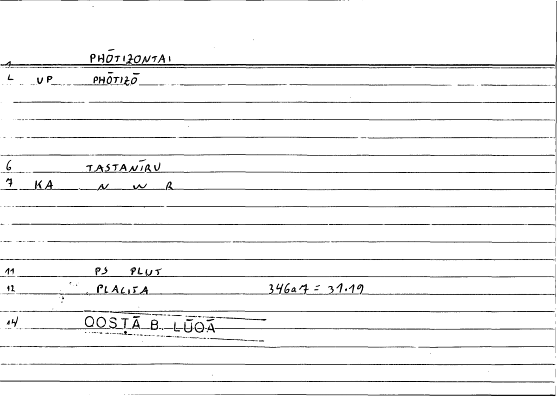 1 PHŌTIZONTAI
2 VP PHŌTIZŌ
6 TASTANĪRU
7 KA N W R
11 PS PLUT
12 PLACITA 346a7 = 31.19
14 QOSṬĀ B. LŪQĀ